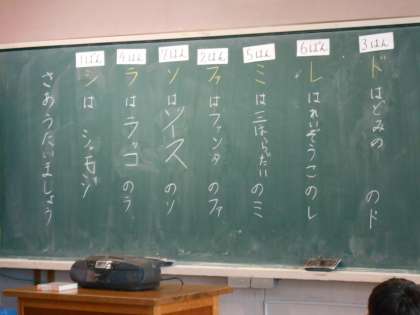 3はん
ドはどみの のド
6ぱん
レはれいぞうこのレ
5はん
ミは のミ
2はん
ファはファンタ のファ
7はん
ソはソース のソ
4はん
ラはラッコ のラ
1ぱん
シは シャモジ
さあうたいましょう